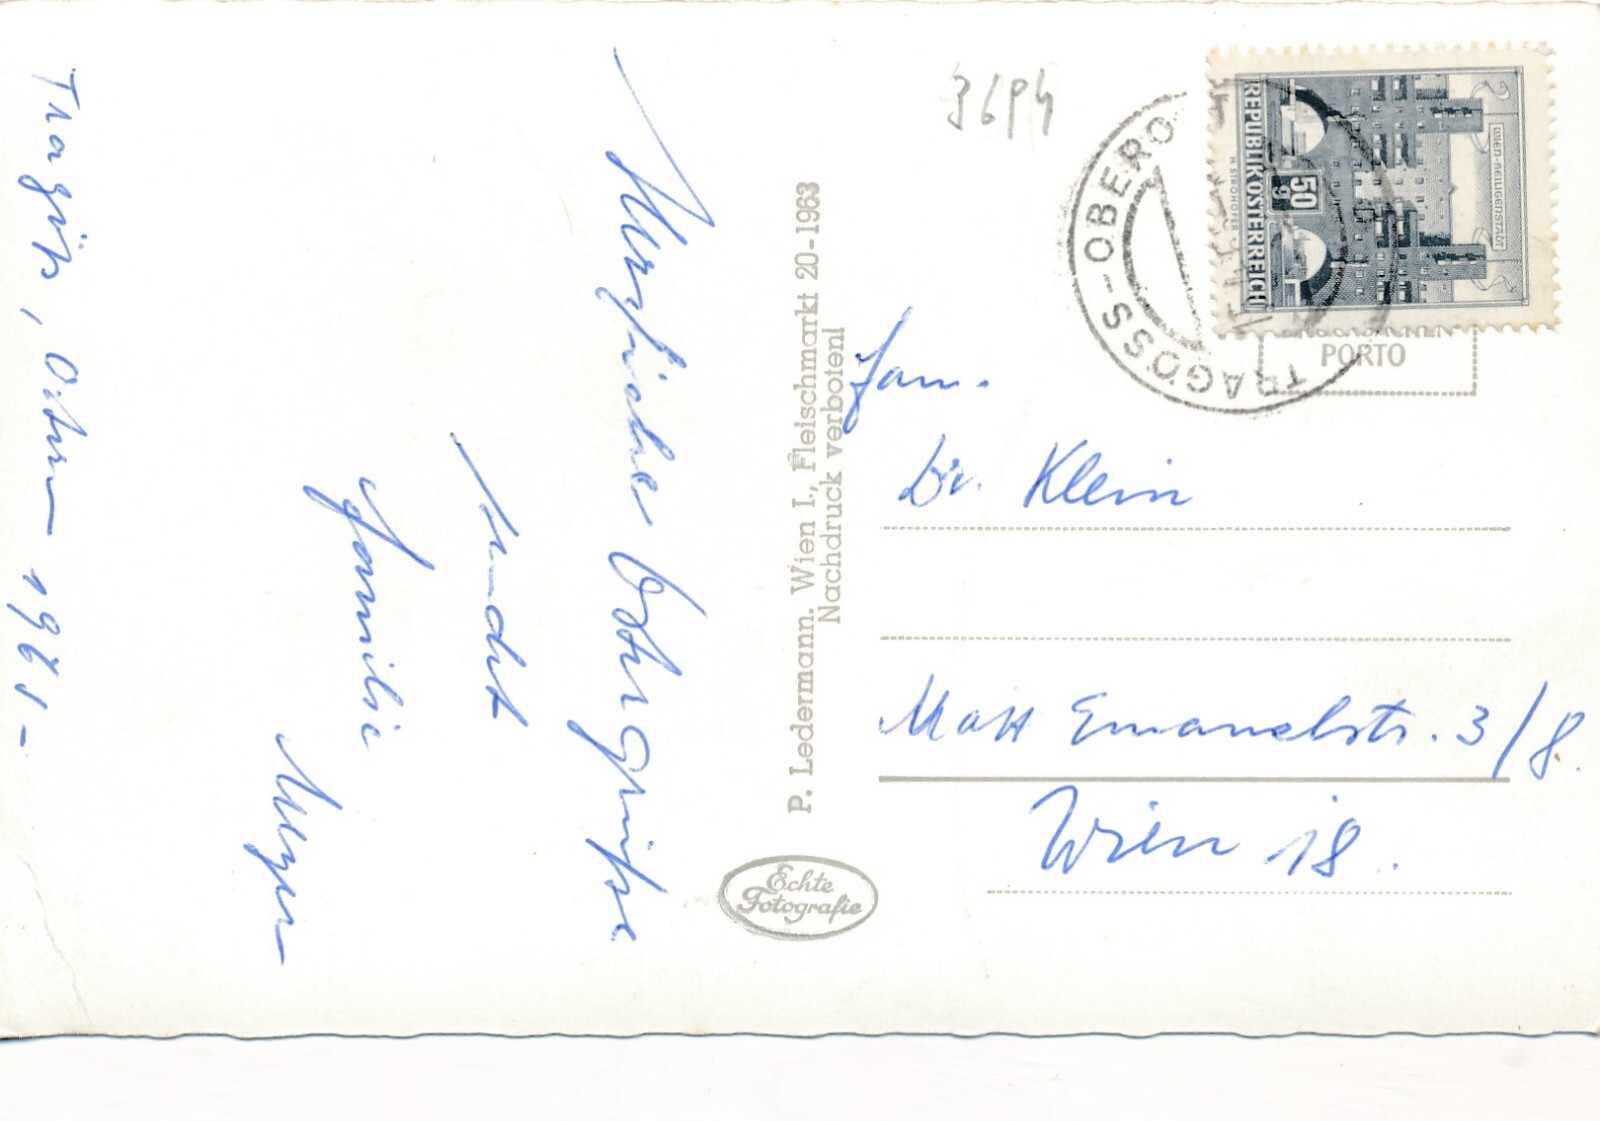 Tragöß, Ostern 1965 -
Herzliche Ostergrüße
sendet
Familie
Meyer
P. Ledermann. Wien I., Fleischmarkt 20-1963
Nachdruck verboten!
Echte
Fotografie
3694
TRAGÖSS-OBERO
REPUBLIK ÖSTERREICH
50
g
H. STROHOFER
WIEN-HEILIGENSTADT
PORTO
Fam.
Dr. Klein
Max Emanuelstr. 3/8.
Wien 18.